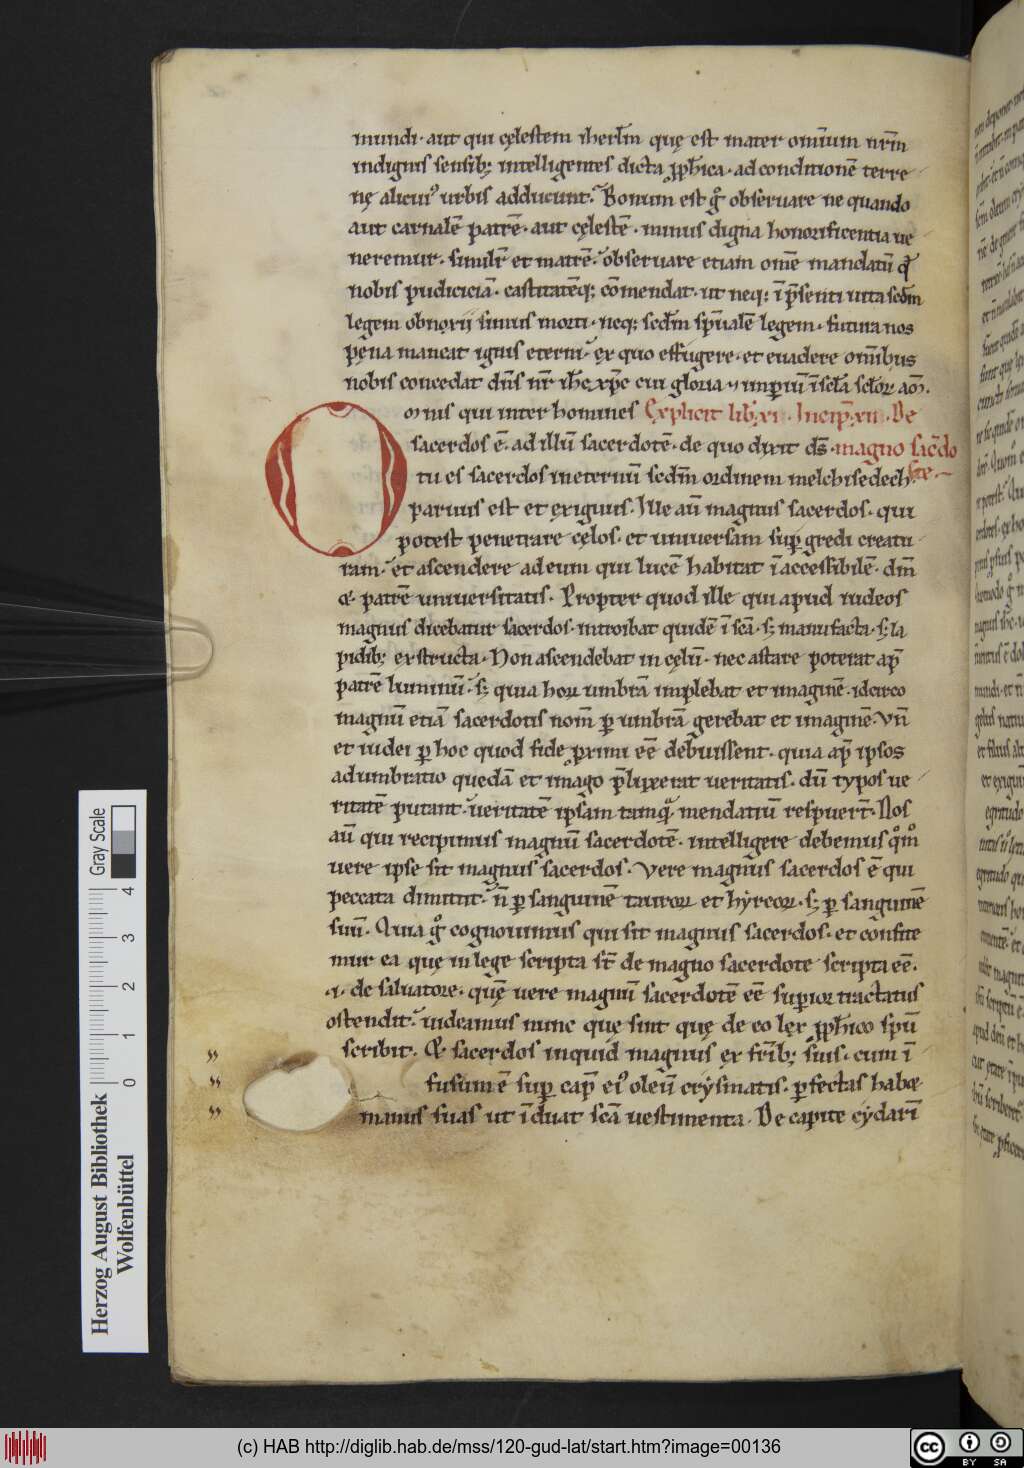 mundi · aut qui cęlestem iherl̄m quę est mater om̄ium nr̄m
indignis sensib; intelligentes dicta ꝓph̄ica · ad conditionē terre
nę alicui᾽ urbis adducunt. Bonum est g̊ obseruare ne quando
aut carnalē patrē · aut cęlestē · minus digna honorificentia ue
neremur · similr̄ et matrē. obseruare etiam om̄e mandatū qd̄
nobis pudiciciā · castitatēq; cōmendat · ut neq; ī p̄senti uita scd̄m
legem obnoxii simus morti · neq; scd̄m sp̄ualē legem · futura nos
pęna maneat ignis eterni. ex quo effugere · et euadere om̄ibus
nobis concedat dn̄s nr̄ ih̄c xp̄c cui gloria ⁊ imꝑiū ī sc̄la sc̄lor̄ am̄.
Omnis qui inter homines Explicit lib̄.xi · Incip̄.xii · De
sacerdos ē · ad illū sacerdotē · de quo dixit ds̄ · magno sac̄do
tu es sacerdos in eternū scd̄m ordinem melchisedech · te.
paruus est et exiguus. Ille aū magnus sacerdos · qui
potest penetrare cęlos · et uniuersam suꝑgredi creatu
ram. et ascendere ad eum qui lucē habitat ī accessibilē · dm̄
& patrē uniuersitatis. Propter quod ille qui apud iudeos
magnus dicebatur sacerdos · introibat quidē ī sc̄a · s; manufacta · s; la
pidib; exstructa · Non ascendebat in cęlū · nec astare poterat ap̄
patrē luminū. s; quia horꝝ umbrā implebat et imaginē · idcirco
magnū etiā sacerdotis nom̄ ꝑ umbrā gerebat et imaginē. Vn̄
et iudei ꝑ hoc quod fide ꝓximi eē debuissent · quia ap̄ ipsos
adumbratio quedā et imago p̄luxerat ueritatis · dū typos ue
ritatē putant. ueritatē ipsam tamq̄ mendatiū respuer̄t. Nos
aū qui recipimus magnū sacerdotē · intelligere debemus qm̊
uere ipse sit magnus sacerdos · Vere magnus sacerdos ē qui
peccata dimittit. n̄ ꝑ sanguinē taurorꝝ et hyrcorꝝ · s; ꝑ sanguinē
suū · Quia g̊ cognouimus qui sit magnus sacerdos · et confite
mur ea quę in lege scripta st̄ de magno sacerdote scripta eē ·
.i. de saluatore · quę uere magnū sacerdotē eē superior tractatus
ostendit. uideamus nunc quę sint quę de eo lex ꝓph̄ico sp̄u
scribit. & sacerdos inquid magnus ex fr̄ib; suis · cum ī
fusum ē suꝑ cap̄ ei᾽ oleū crysmatis · ꝑfectas habæ
manus suas ut īduat sc̄a uestimenta · De capite cydarī
Herzog August Bibliothek
Wolfenbüttel
Gray Scale
0 1 2 3 4
(c) HAB http://diglib.hab.de/mss/120-gud-lat/start.htm?image=00136
cc BY SA